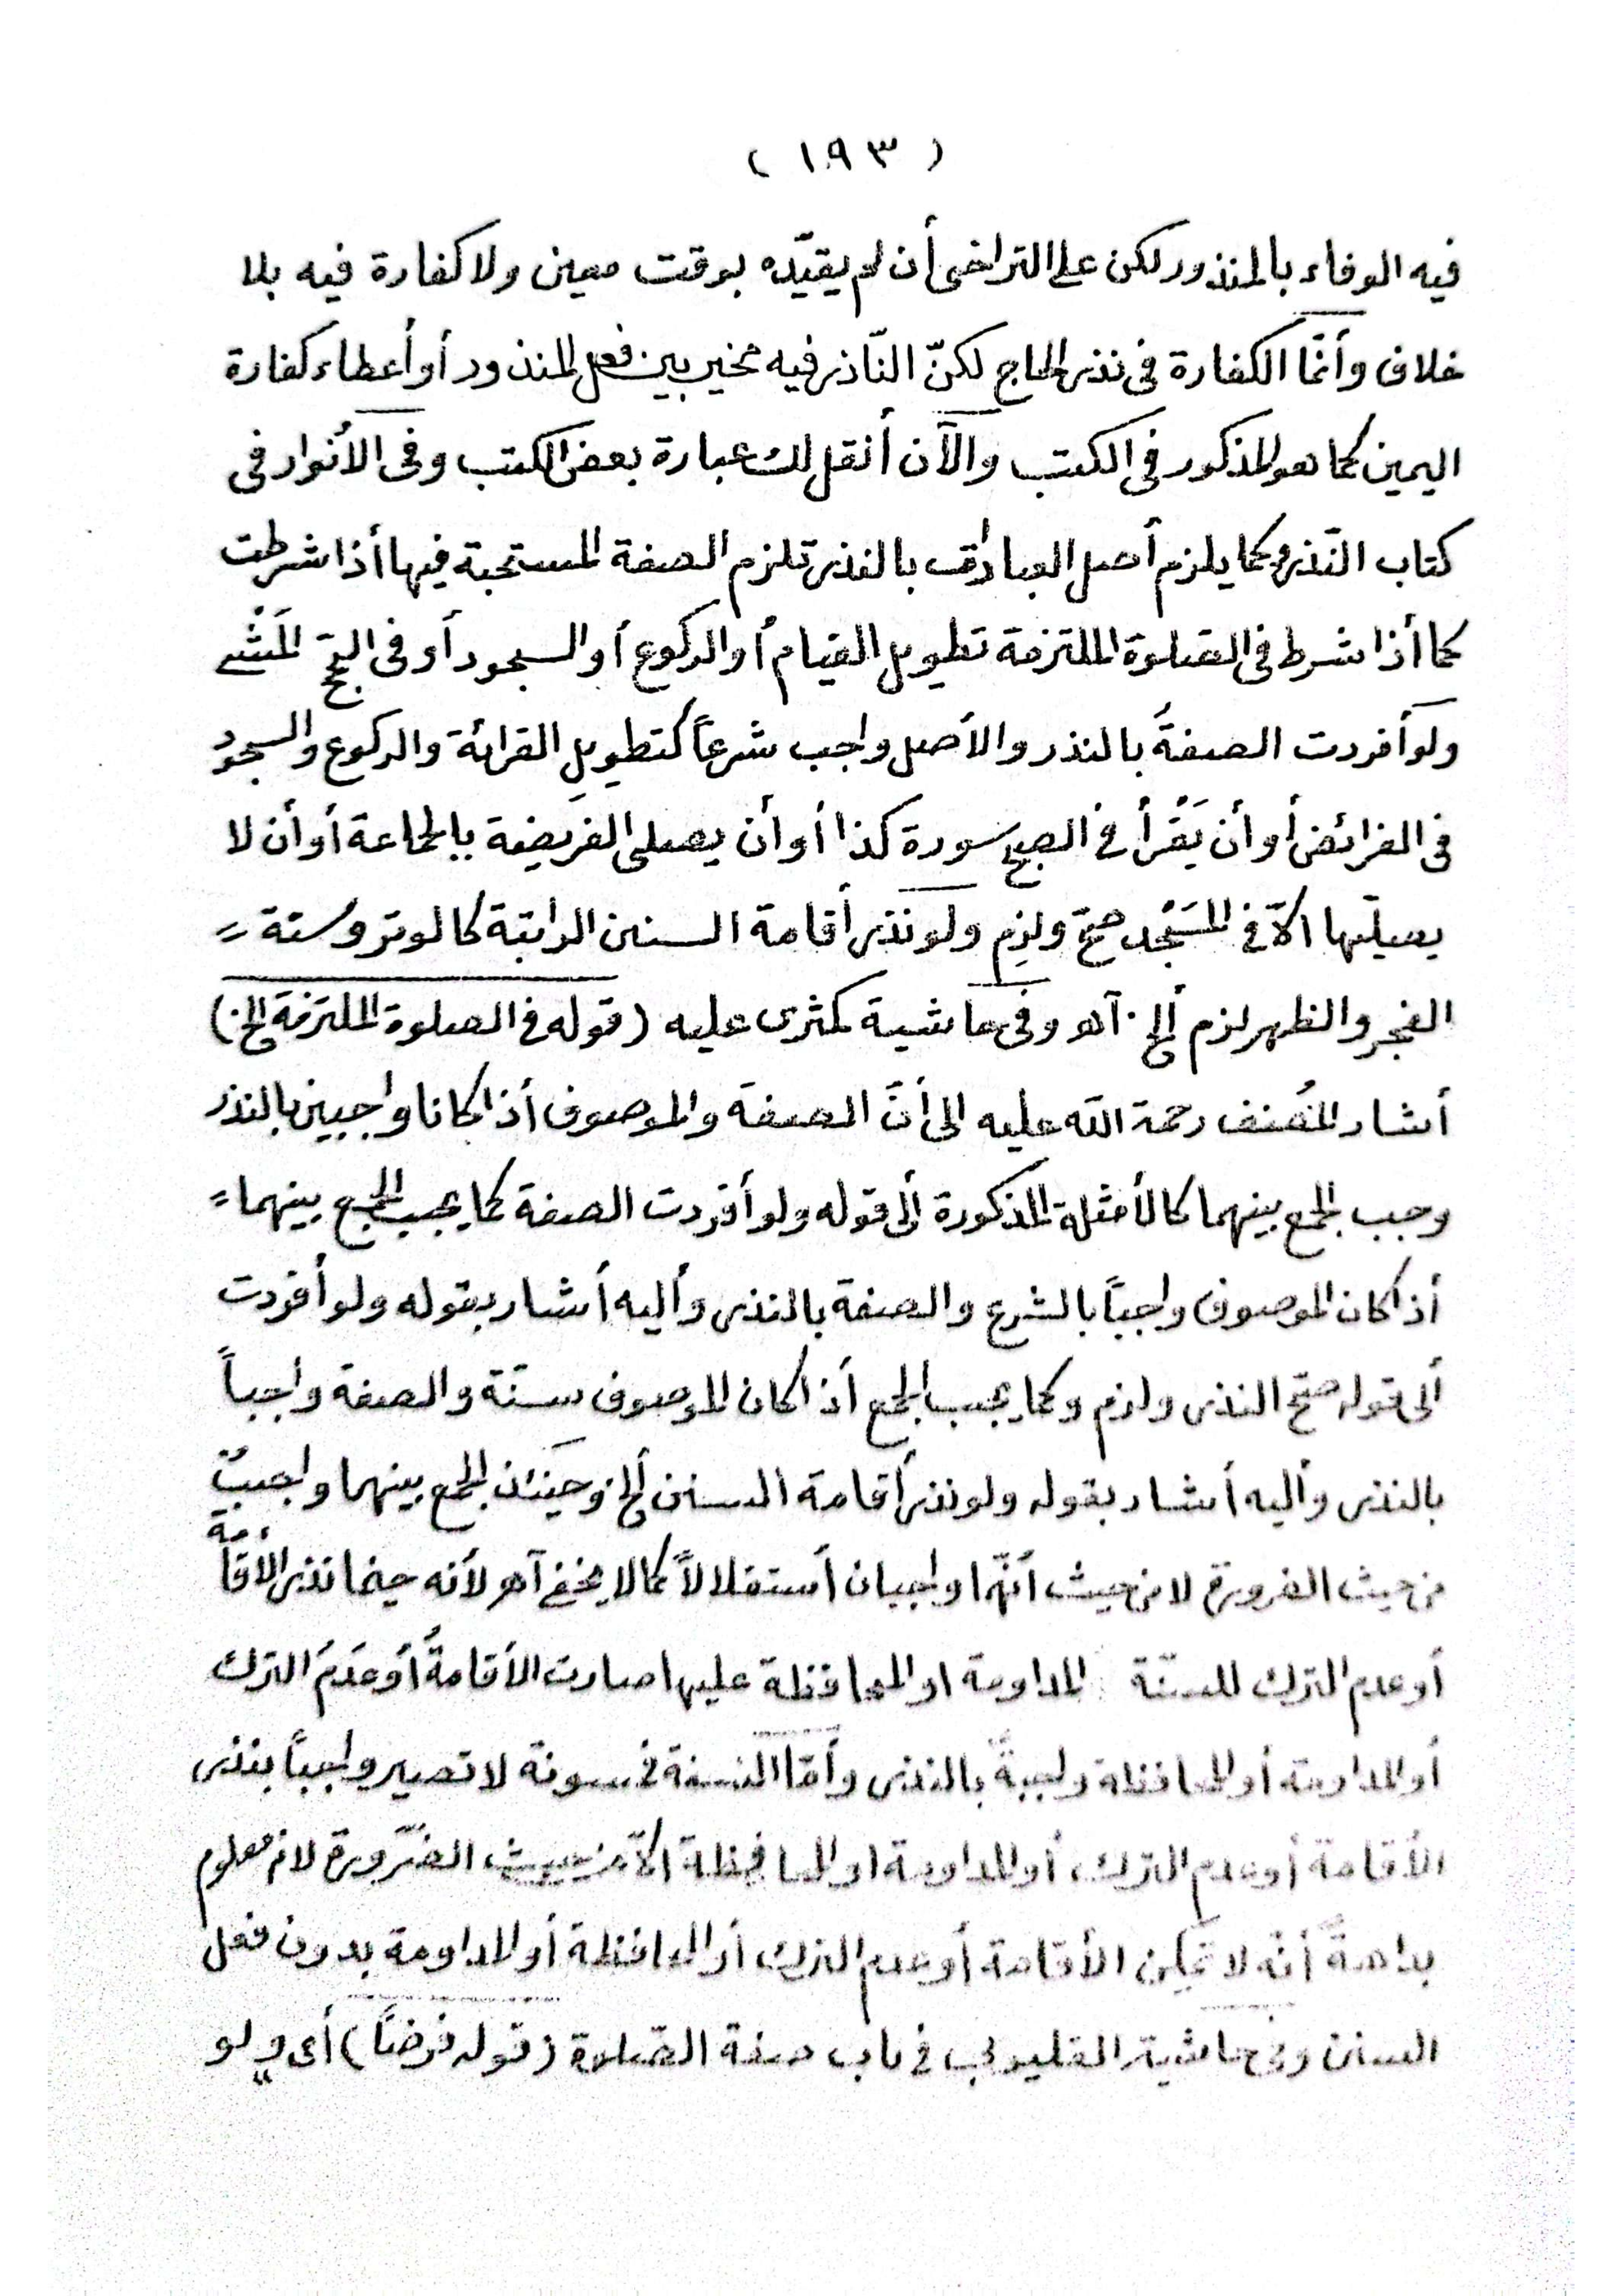 ( ١٩٣ )
فيه الوفاء بالمنذور لكن على التراخى أن لم يقيّده بوقت معين ولا كفارة فيه بلا
خلاف وأنّما الكفارة فى نذر اللجاج لكنّ النّاذر فيه مخير بين فعل المنذور أو أعطاء كفارة
اليمين كما هو المذكور فى الكتب والآن أنقل لك عبارة بعض الكتب وفى الأنوار فى
كتاب النّذر وكما يلزم أصل العبادات بالنذر تلزم الصفة المستحبة فيها أذا شرطت
كما أذا شرط فى الصّلوة الملتزمة تطويل القيام أو الركوع أو السجود أو فى الحّج المَشْى
ولو أفردت الصفةُ بالنذر والأصل واجب شرعاً كتطويلِ القرائة والركوع والسجود
فى الفرائض أو أن يَقْرأ فى الصبح سورة كذا أو أن يصلى الفريضة بالجماعة أو أن لا
يصلّيها الاّ فى المَسْجد صحّ ولزِم ولو نذر أقامة السنن الراتبة كالوتر وسنّة
الفجر والظهر لزم ألخ. آهـ وفى حاشية كمثرى عليه (قوله فى الصلوة الملتزمة الخ)
أشار المُصنف رحمة الله عليه الى أنَّ الصفةَ والموصوف أذا كانا واجبين بالنذر
وجب الجمع بينهما كالأمثلة المذكورة ألى قوله ولو أفردت الصفة كما يجب الجمع بينهما
أذا كان الموصوف واجباً بالشرع والصفة بالنذر وأليه أشار بقوله ولو أفردت
ألى قوله صحّ النذر ولزم وكما يجب الجمع أذا كان الموصوف سنّة والصفة واجباً
بالنذر وأليه أشار بقوله ولو نذر أقامة السنن ألخ وحينئذ الجمع بينهما واجبٌ
من حيث الضرورة لا من حيث أنّهما واجبان أستقلالاً كما لا يخفى آهـ لأنه حينما نذر الأقامة
أو عدم الترك للسنّة المداومة او المحافظة عليها صارت الأقامةُ أو عَدَمُ الترك
أو المداومة أو المحافظة واجبةً بالنذر وأمّا السنة فمسنونة لا تصير واجباً بنذر
الأقامة أو عدم الترك، أو المداومة او المحافظة الاّ من حيث الضّرورة لانه معلوم
بداهةً أنّه لا تمكِن الأقامة أو عدم الترك أو المحافظة أو المداومة بدون فعل
السنن وفى حاشية القليوبى فى باب صفة الصّلاة (قوله فرضاً) أى ولو